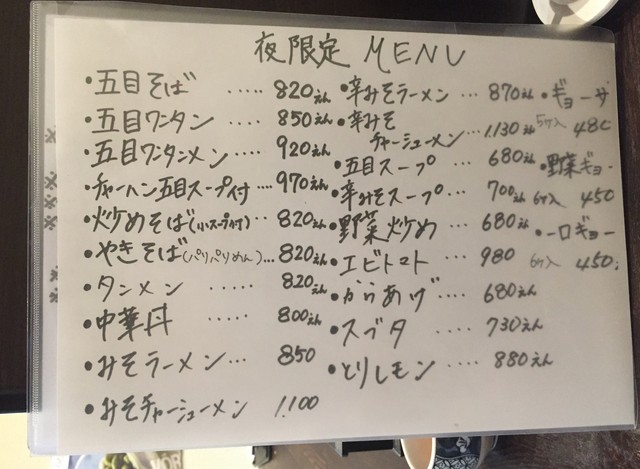 夜限定 MENU
・五目そば ..... 820えん
・五目ワンタン 850えん
・五目ワンタンメン ... 920えん
・チャーハン五目スープ付 .... 970えん
・炒めそば(小スープ付) .. 820えん
・やきそば(パリパリめん) ... 820えん
・タンメン ..... 820えん
・中華丼 ..... 800えん
・みそラーメン ... 850
・みそチャーシューメン 1.100
・辛みそラーメン ... 870えん
・辛みそ
チャーシューメン ... 1.130えん
・五目スープ .... 680えん
・辛みそスープ .... 700えん
・野菜炒め .... 680えん
・エビトマト .... 980
・からあげ .... 680えん
・スブタ .... 730えん
・とりレモン .... 880えん
・ギョーザ
5ケ入 480
・野菜ギョー
6ケ入 450
・一口ギョー
6ケ入 450